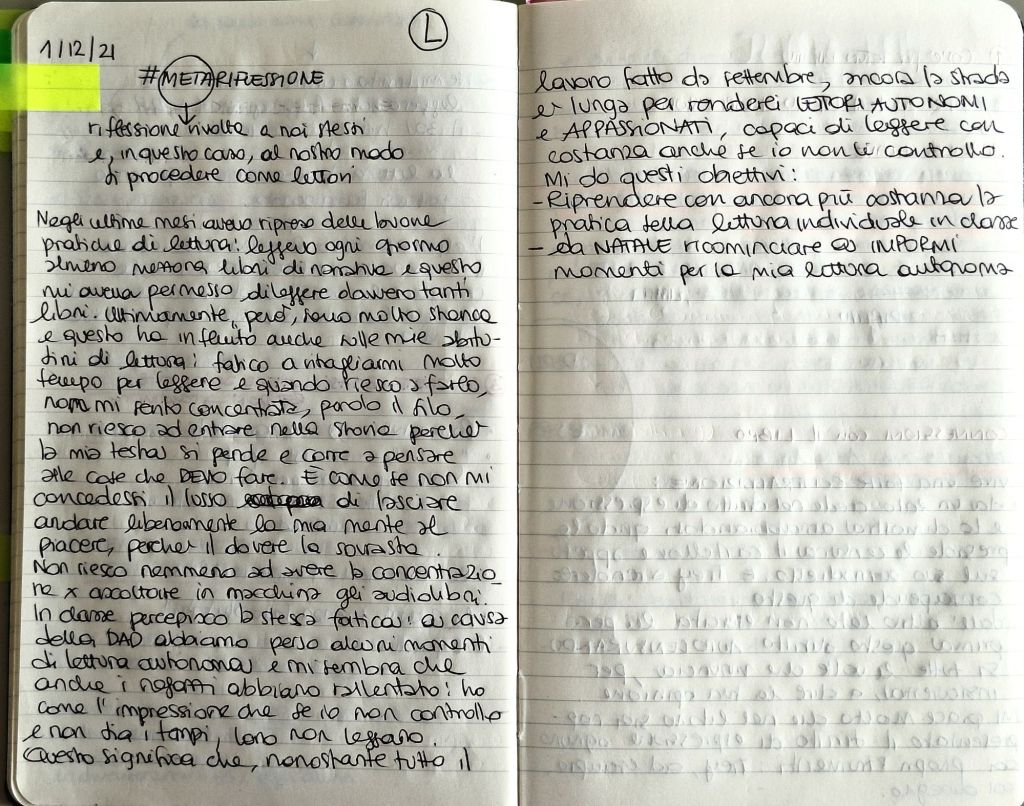 L
1/12/21
#METARIFLESSIONE
riflessione rivolta a noi stessi
e, in questo caso, al nostro modo
di procedere come lettori
Negli ultime mesi avevo ripreso delle buone
pratiche di lettura: leggevo ogni giorno
almeno mezzora libri di narrativa e questo
mi aveva permesso di leggere davvero tanti
libri. Ultimamente, però, sono molto stanca
e questo ha influito anche sulle mie abitu-
dini di lettura: fatico a ritagliarmi molto
tempo per leggere e quando riesco a farlo,
non mi sento concentrata, perdo il filo,
non riesco ad entrare nella storia perché
la mia testa si perde e corre a pensare
alle cose che DEVO fare. È come se non mi
concedessi il lusso di lasciare
andare liberamente la mia mente al
piacere, perché il dovere la sovrasta.
Non riesco nemmeno ad avere la concentrazio-
ne x ascoltare in macchina gli audiolibri.
In classe percepisco la stessa fatica: a causa
della DAD abbiamo perso alcuni momenti
di lettura autonoma e mi sembra che
anche i ragazzi abbiano rallentato: ho
come l'impressione che se io non controllo
e non dia i tempi, loro non leggano.
Questo significa che, nonostante tutto il
lavoro fatto da settembre, ancora la strada
è lunga per renderei LETTORI AUTONOMI
e APPASSIONATI, capaci di leggere con
costanza anche se io non li controllo.
Mi do questi obiettivi:
- Riprendere con ancora più costanza la
pratica della lettura individuale in classe
- da NATALE ricominciare a IMPORMI
momenti per la mia lettura autonoma